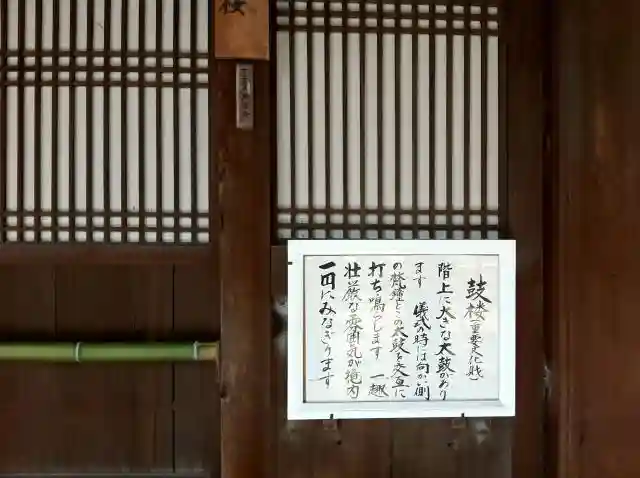 鼓楼(重要文化財)
階上に大きな太鼓があり
ます 儀式の時には向い側
の梵鐘とこの太鼓を交互に
打ち鳴らします 一趣
壮厳な雰囲気が境内
一円にみなぎります
楼